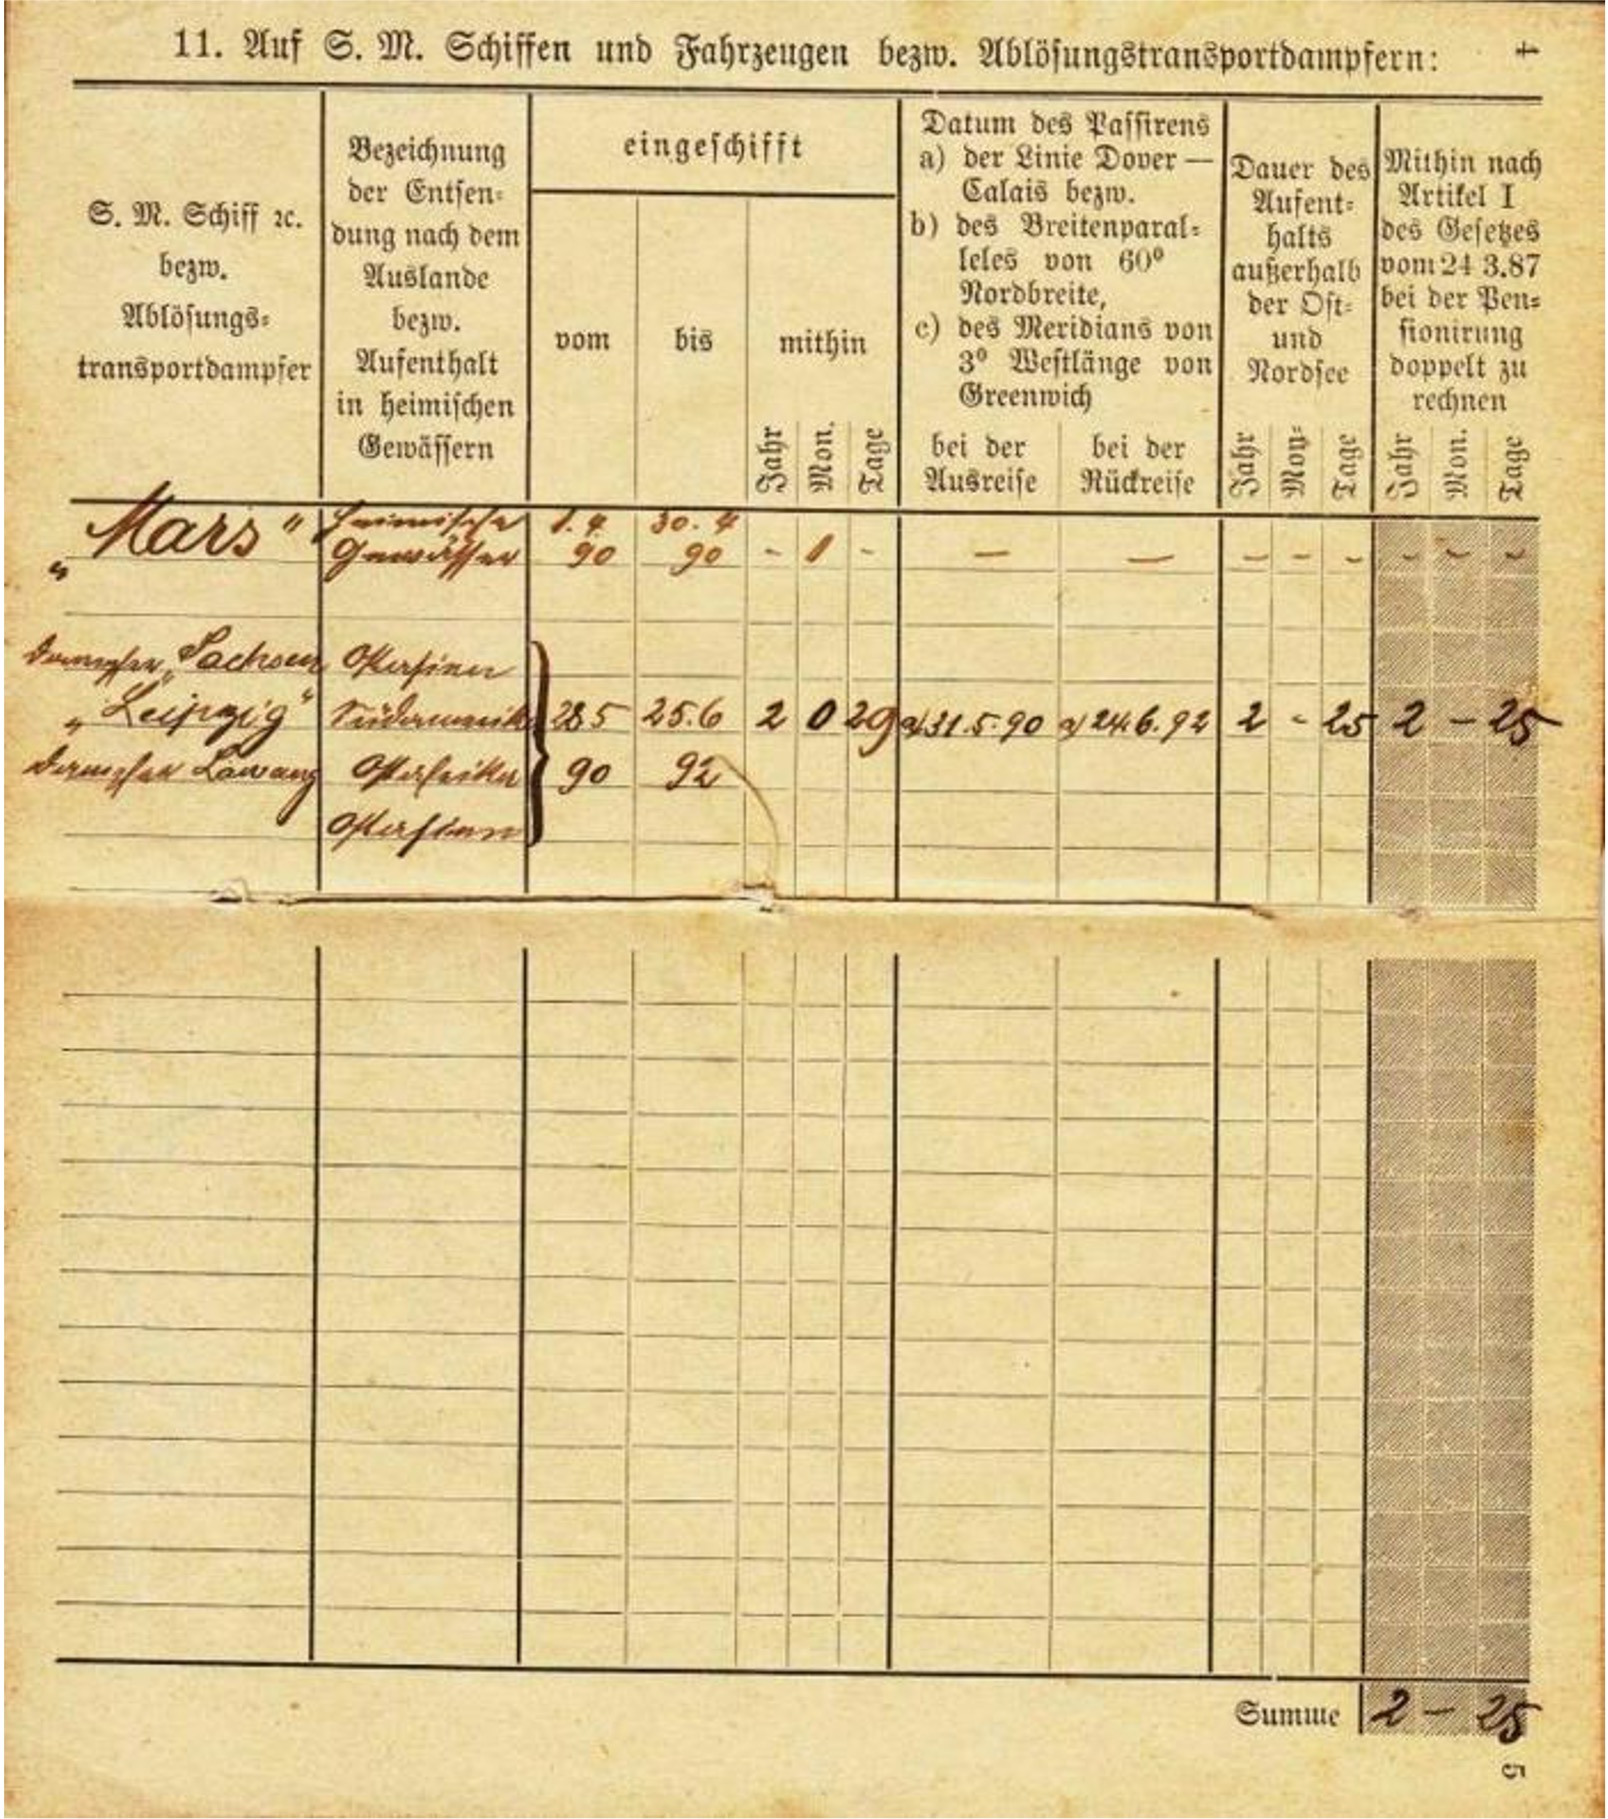 11. Auf S. M. Schiffen und Fahrzeugen bezw. Ablösungstransportdampfern:
4
S. M. Schiff ꝛc.
bezw.
Ablösungs-
transportdampfer
Bezeichnung
der Entsen-
dung nach dem
Auslande
bezw.
Aufenthalt
in heimischen
Gewässern
eingeschifft
vom
bis
mithin
Jahr
Mon.
Tage
Datum des Passirens
a) der Linie Dover —
Calais bezw.
b) des Breitenparal-
leles von 60°
Nordbreite,
c) des Meridians von
3° Westlänge von
Greenwich
bei der
Ausreise
bei der
Rückreise
Dauer des
Aufent-
halts
außerhalb
der Ost-
und
Nordsee
Jahr
Mon.
Tage
Mithin nach
Artikel I
des Gesetzes
vom 24 3.87
bei der Pen-
sionirung
doppelt zu
rechnen
Jahr
Mon.
Tage
„Mars“ heimische 1. 4 30. 4
Gewässer 90 90 - 1 - — — - - - - - -
Dampfer „Sachsen Ostasien
„Leipzig“ Südamerika 28 5 25.6 2 0 29 a) 31.5.90 a) 24.6.92 2 - 25 2 - 25
Dampfer Lawang Ostafrika 90 92
Ostasien
Summe 2 - 25
5